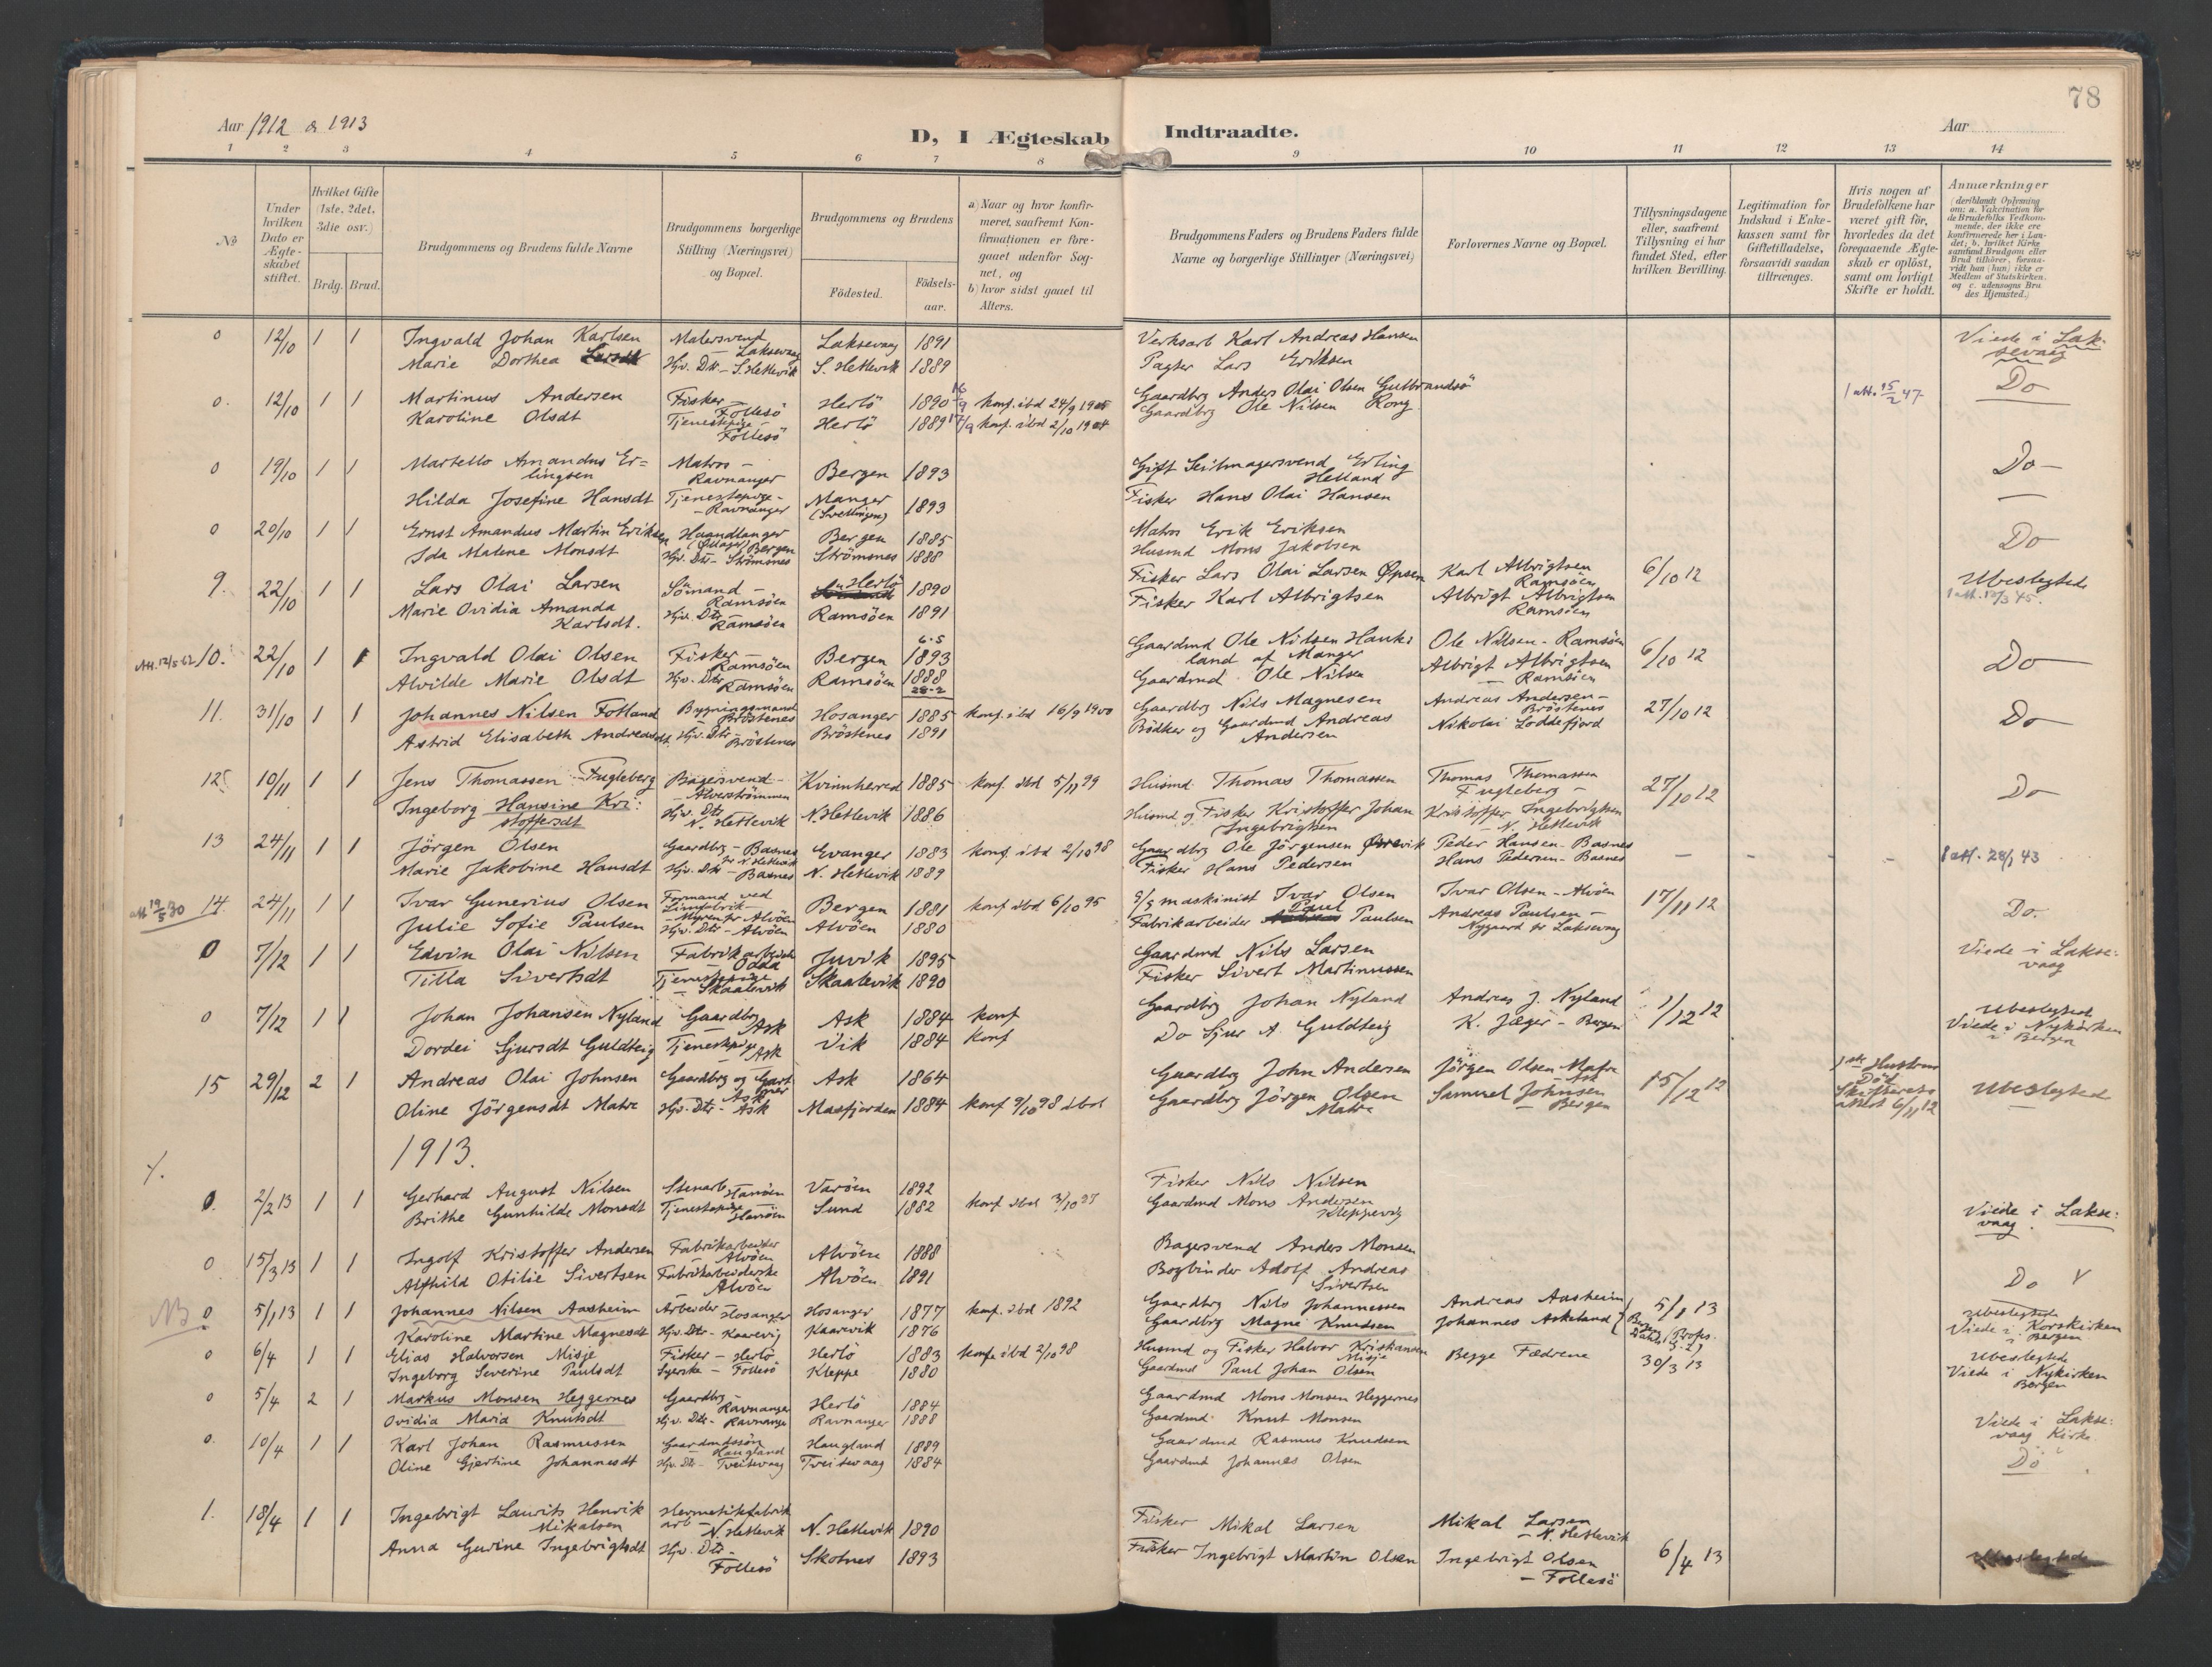 78
Aar 1912 & 1913
D, I Ægteskab Indtraadte.
Aar
1 2 3 4 5 6 7 8 9 10 11 12 13 14
No
Under hvilken Dato er Ægteskabet stiftet.
Hvilket Gifte (1ste, 2det, 3die osv.)
Brdg. Brud.
Brudgommens og Brudens fulde Navne
Brudgommens borgerlige Stilling (Næringsvei) og Bopæl.
Brudgommens og Brudens
Födested.
Födsels-aar.
a) Naar og hvor konfirmeret, saafremt Konfirmationen er foregaaet udenfor Sognet, og
b) hvor sidst gaaet til Alters.
Brudgommens Faders og Brudens Faders fulde Navne og borgerlige Stillinger (Næringsvei)
Forlovernes Navne og Bopæl.
Tillysningsdagene eller, saafremt Tillysning ei har fundet Sted, efter hvilken Bevilling.
Legitimation for Indskud i Enkekassen samt for Giftetilladelse, forsaavidt saadan tiltrænges.
Hvis nogen af Brudefolkene har været gift för, hvorledes da det foregaaende Ægteskab er oplöst, samt om lovligt Skifte er holdt.
Anmærkninger
(deriblandt Oplysning om: a. Vakcination for de Brudefolks Vedkommende, der ikke ere konfirmerede her i Landet; b. hvilket Kirkesamfund Brudgom eller Brud tilhörer, forsaavidt han (hun) ikke er Medlem af Statskirken. og c. udensogns Brudes Hjemsted.)
0 12/10 1 1 Ingvald Johan Karlsen Malersvend Laksevaag Laksevaag 1891 Verksarb Karl Andreas Hansen Viede i Laksevaag
Marie Dorthea Larsdt Hjv. Dtr - S. Hetlevik S. Hetlevik 1889 Pagter Lars Eriksen
0. 12/10 1 1 Martinus Andersen Fisker - Follesö Herlö 1890 16/9 konf. ibd 24/9 1905 Gaardbrg Anders Olai Olsen Gulbrandsö 1 att. 15/2 47. Do
Karoline Olsdt Tjenestepige - Follesö Herlö 1889 17/9 konf. ibd 2/10 1904 Gaardbrg Ole Nilsen Rong
0 19/10 1 1 Martello Amandus Er=lingsen Matros - Ravnanger Bergen 1893 Gift Seilmagersvend Erling Helland Do -
Hilda Josefine Hansdt Tjenestepige - Ravnanger Manger (Svellingen) 1893 Fisker Hans Olai Hansen
0 20/10 1 1 Ernst Amandus Martin Eriksen Haandlanger Bergen Bergen 1885 Matros Erik Eriksen Do
Ida Malene Monsdt Hjv. Dtr - Strömsnes Strömsnes 1888 Husmd Mons Jakobsen
9. 22/10 1 1 Lars Olai Larsen Sömand - Ramsöen Herlö 1890 Fisker Lars Olai Larsen Öpsen Karl Albrigtsen Ramsöen 6/10 12 Ubeslegtede
Marie Ovidia Amanda Karlsdt. Hjv. Dtr Ramsöen Ramsöen 1891 Fisker Karl Albrigtsen Albrigt Albrigtsen Ramsöen 1 att. 12/3 45.
Att. 12/5 62 10. 22/10 1 1 Ingvald Olai Olsen Fisker - Ramsöen Bergen 6-5 1893 Gaardmd Ole Nilsen Haukeland af Manger Ole Nilsen - Ramsöen 6/10 12 Do
Alvilde Marie Olsdt Hjv. Dtr Ramsöen Ramsöen 1888 28-2 Gaardmd Ole Nilsen Albrigt Albrigtsen - Ramsöen
11. 31/10 1 1 Johannes Nilsen Fotland Bygningsmand Bröstenes Hosanger 1885 konf. ibd 16/9 1900 Gaardbrg Nils Magnesen Andreas Andersen - Bröstenes 27/10 12 Do
Astrid Elisabeth Andreasdt. Hjv. Dtr - Bröstenes Bröstenes 1891 Bödker og Gaardmd Andreas Andersen Nikolai Loddefjord
12 10/11 1 1 Jens Thomassen Fugleberg Bagersvend - Alverströmmen Kvinnherred 1885 konf. ibd 5/11 99 Husmd. Thomas Thomassen Thomas Thomassen Fugleberg - 27/10 12 Do
Ingeborg Hansine Kri:stoffersdt Hjv. Dtr N. Hetlevik N. Hetlevik 1886 Husmd og Fisker Kristoffer Johan Ingebrigtsen Kristoffer Ingebrigtsen - N. Hetlevik
13 24/11 1 1 Jörgen Olsen Gaardbrg - Basnes pr N. Hetlevik Evanger 1883 konf ibd 2/10 98 Gaardbrg Ole Jörgensen Peder Hansen - Basnes - - - 1 att. 28/1 43
Marie Jakobine Hansdt Hjv. Dtr - Basnes N. Hetlevik 1889 Fisker Hans Pedersen Hans Pedersen - Basnes
att 19/5 30 14. 24/11 1 1 Ivar Gunerius Olsen Formand ved Limfabrik - Myren pr Alvöen Bergen 1881 konf ibd 6/10 95 maskinist Ivar Olsen Ivar Olsen - Alvöen 17/11 12 Do.
Julie Sofie Paulsen Hjv. Dtr - Alvöen Alvöen 1880 Fabrikarbeider Paul Paulsen Andreas Paulsen - Nygaard pr Laksevaag
0 7/12 1 1 Edvin Olai Nilsen Fabrikarbeider - Odda Juvik 1895 Gaardmd Nils Larsen Viede i Lakse:vaag
Tilla Sivertsdt Tjenestepige - Skaalevik Skaalevik 1890 Fisker Sivert Martinussen
0 7/12 1 1 Johan Johansen Nyland Gaardbrg Ask Ask 1884 konf Gaardbrg Johan Nyland Andreas J. Nyland 1/12 12 Ubeslegtede Viede i Nykirken i Bergen
Dordei Sjursdt Guldteig Tjenestepige Ask Vik 1884 konf Do Sjur A. Guldteig K. Jæger - Bergen
15 29/12 2 1 Andreas Olai Johnsen Gaardbrg og Gartner Ask Ask 1864 Gaardbrg John Andersen Jörgen Olsen Matre Ask 15/12 12 1ste Hustru Död Skifterets attest 6/11 12 Ubeslegtede
Oline Jörgensdt Matre Hjv. Dtr - Ask Masfjorden 1884 konf 9/10 98 ibd Gaardbrg Jörgen Olsen Matre Samuel Johnsen - Bergen
1913.
0. 2/2 13 1 1 Gerhard August Nilsen Stenarb Hanöen Varöen 1892 Fisker Nils Nilsen Viede i Lakse:vaag.
Brithe Gunhilde Monsdt Tjenestepige Hanöen Sund 1882 konf ibd 3/10 97 Gaardmd Mons Andersen Kleppevig
0 15/3 13 1 1 Ingolf Kristoffer Andersen Fabrikarbeider Alvöen Alvöen 1888 Bagersvend Anders Monsen Do
Alfhild Otilie Sivertsen Fabrikarbeiderske Alvöen Alvöen 1891 Bogbinder Adolf Andreas Sivertsen
NB 0 5/1 13 1 1 Johannes Nilsen Aasheim Arbeider - Hosanger Hosanger 1877 konf. ibd 1892 Gaardbrg Nils Johannessen Andreas Aasheim 5/1 13 Ubeslegtede Viede i Korskirken i Bergen
Karoline Martine Magnesdt Hjv. Dtr - Kaarevig Kaarevik 1876 Gaardbrg Magne Knudsen Johannes Askeland
0 6/4 1 1 Elias Halvorsen Misje Fisker - Herlö Herlö 1883 konf ibd 2/10 98 Husmd og Fisker Halvor Kristiansen Misje Begge Fædrene 30/3 13 Ubeslegtede Viede i Nykirken Bergen
Ingeborg Severine Paulsdt Syerske - Follesö Kleppe 1880 Gaardmd Paul Johan Olsen
0 5/4 2 1 Markus Monsen Heggernes Gaardbrg - Ravnanger Herlö 1884 Gaardmd Mons Monsen Heggernes Viede i Lakse:vaag Kirke
Ovidia Maria Knutsdt Hjv. Dtr - Ravnanger Ravnanger 1888 Gaardmd Knut Monsen
0. 10/4 1 1 Karl Johan Rasmussen Gaardmdssön Haugland Haugland 1889 Gaardmd Rasmus Knudsen Do
Oline Gjertine Johannesdt Hjv. Dtr - Tveitevaag Tveitevaag 1884 Gaardmd Johannes Olsen
1. 18/4 1 1 Ingebrigt Laurits Henrik Mikalsen Hermetikfabrik arb - N. Hetlevik N. Hetlevik 1890 Fisker Mikal Larsen Mikal Larsen - N. Hetlevik 6/4 13 Ubeslegtede
Anna Gurine Ingebrigtsdt Hjv. Dtr - Follesö Skotnes 1893 Fisker Ingebrigt Martin Olsen Ingebrigt Olsen - Follesö